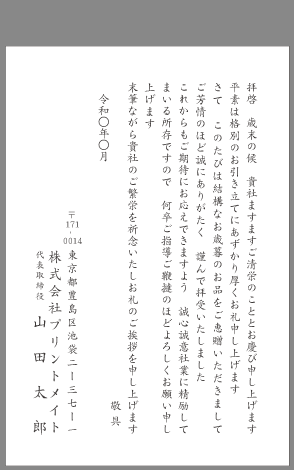 拝啓　歳末の候　貴社ますますご清栄のこととお慶び申し上げます
平素は格別のお引き立てにあずかり厚くお礼申し上げます
さて　このたびは結構なお歳暮のお品をご恵贈いただきまして
ご芳情のほど誠にありがたく　謹んで拝受いたしました
これからもご期待にお応えできますよう　誠心誠意社業に精励して
まいる所存ですので　何卒ご指導ご鞭撻のほどよろしくお願い申し
上げます
末筆ながら貴社のご繁栄を祈念いたしお礼のご挨拶を申し上げます
敬具
令和〇年〇月
〒171-0014
東京都豊島区池袋二ー三七ー一
株式会社プリントメイト
代表取締役　山田太郎